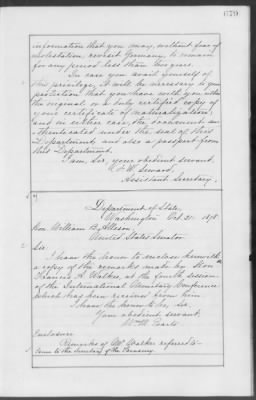 679
information that you may, without fear of
molestation, revisit Germany, to remain
for any period less than two years.
In case you avail yourself of
this privilege, it will be necessary to your
protection that you have with you either
the original or a duly certified copy of
your certificate of naturalization,
and in either case, the document au-
thenticated under the seal of this
Department; and also a passport from
this Department.
I am, Sir, your obedient servant,
F. W. Seward,
Assistant Secretary.
Department of State,
Washington Oct 21. 1878
Hon. William B. Allison,
United States Senator.
Sir:
I have the honor to enclose herewith
a copy of the remarks made by Hon
Francis A. Walker, at the fourth session
of the International Monetary Conference
which has been received from him.
I have the honor to be, Sir,
Your obedient servant,
Wm M. Evarts
Enclosure:
Remarks of Mr Walker referred to
to the Secretary of the Treasury.